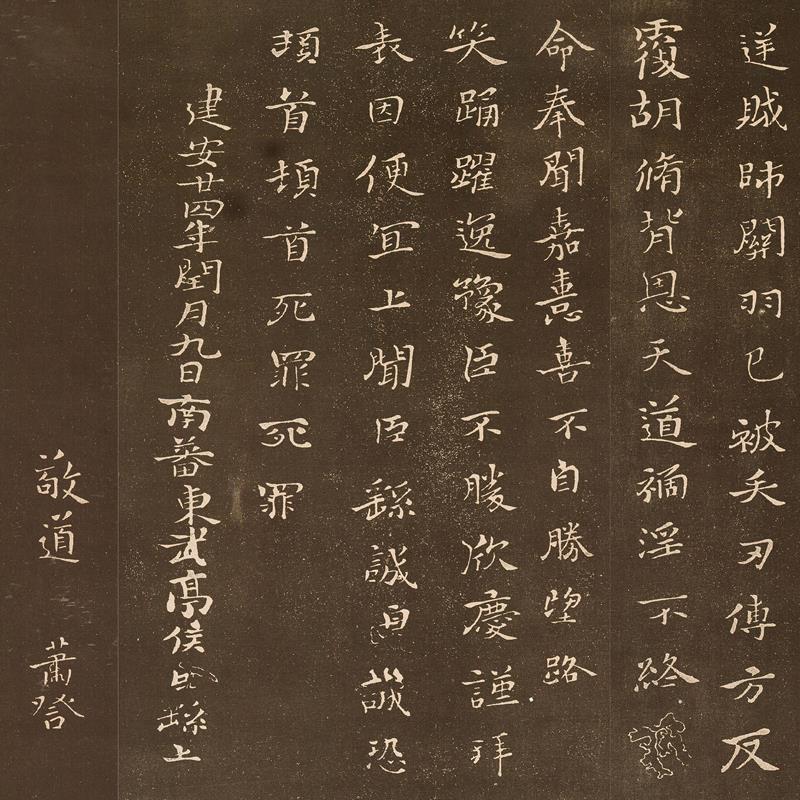 逆賊帥關羽已被矢刃傅方反
覆胡脩背恩天道禍淫不終
命奉聞嘉憙喜不自勝望路
笑踊躍逸豫臣不勝欣慶謹拜
表因便宜上聞臣繇誠皇誠恐
頓首頓首死罪死罪
建安廿四年閏月九日南蕃東武亭侯臣繇上
敬道 蕭